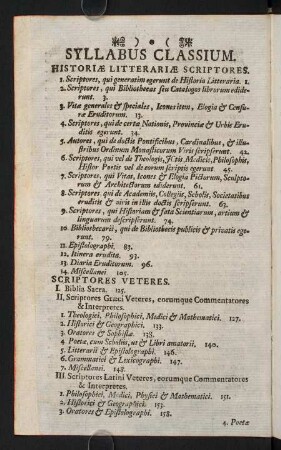 ) • (
SYLLABUS CLASSIUM.
HISTORIÆ LITTERARIÆ SCRIPTORES.
1. Scriptores, qui generatim egerunt de Historia Litteraria. 1.
2. Scriptores, qui Bibliothecas seu Catalogos librorum edide-
runt. 3.
3. Vitæ generales & speciales, Icones item, Elogia & Censu-
ræ Eruditorum. 13.
4. Scriptores, qui de certa Nationis, Provinciæ & Urbis Eru-
ditis egerunt. 34.
5. Autores, qui de doctis Pontificibus, Cardinalibus, & illu-
stribus Ordinum Monasticorum Viris scripserunt. 42.
6. Scriptores, qui vel de Theologis, JCtis, Medicis, Philosophis,
Histor Poetis vel de eorum scriptis egerunt 45.
7. Scriptores, qui Vitas, Icones & Elogia Pictorum, Sculpto-
rum & Architectorum ediderunt. 61.
8. Scriptores, qui de Academiis, Collegiis, Scholis, Societatibus
eruditis & viris in illis doctis scripserunt. 63.
9. Scriptores, qui Historiam & fata Scientiarum, artium &
linguarum descripserunt. 74.
10. Bibliothecarii, qui de Bibliothecis publicis & privatis ege-
runt. 79.
11. Epistolographi. 83.
12. Itinera erudita. 93.
13. Diaria Eruditorum. 96.
14. Miscellanei 105.
SCRIPTORES VETERES.
I. Biblia Sacra. 115.
II. Scriptores Græci Veteres, eorumque Commentatores
& Interpretes.
1. Theologici, Philosophici, Medici & Mathematici. 127.
2. Historici & Geographici. 133.
3. Oratores & Sophistæ. 138.
4 Poetæ, cum Scholiis, ut & Libri amatorii. 140.
5. Litterarii & Epistolographi. 146.
6. Grammatici & Lexicographi. 147.
7. Miscellanei. 148.
III. Scriptores Latini Veteres, eorumque Commentatores
& Interpretes.
1. Philosophici, Medici, Physici & Mathematici. 151.
2. Historici & Geographici. 153.
3. Oratores & Epistolographi. 158.
4. Poetæ